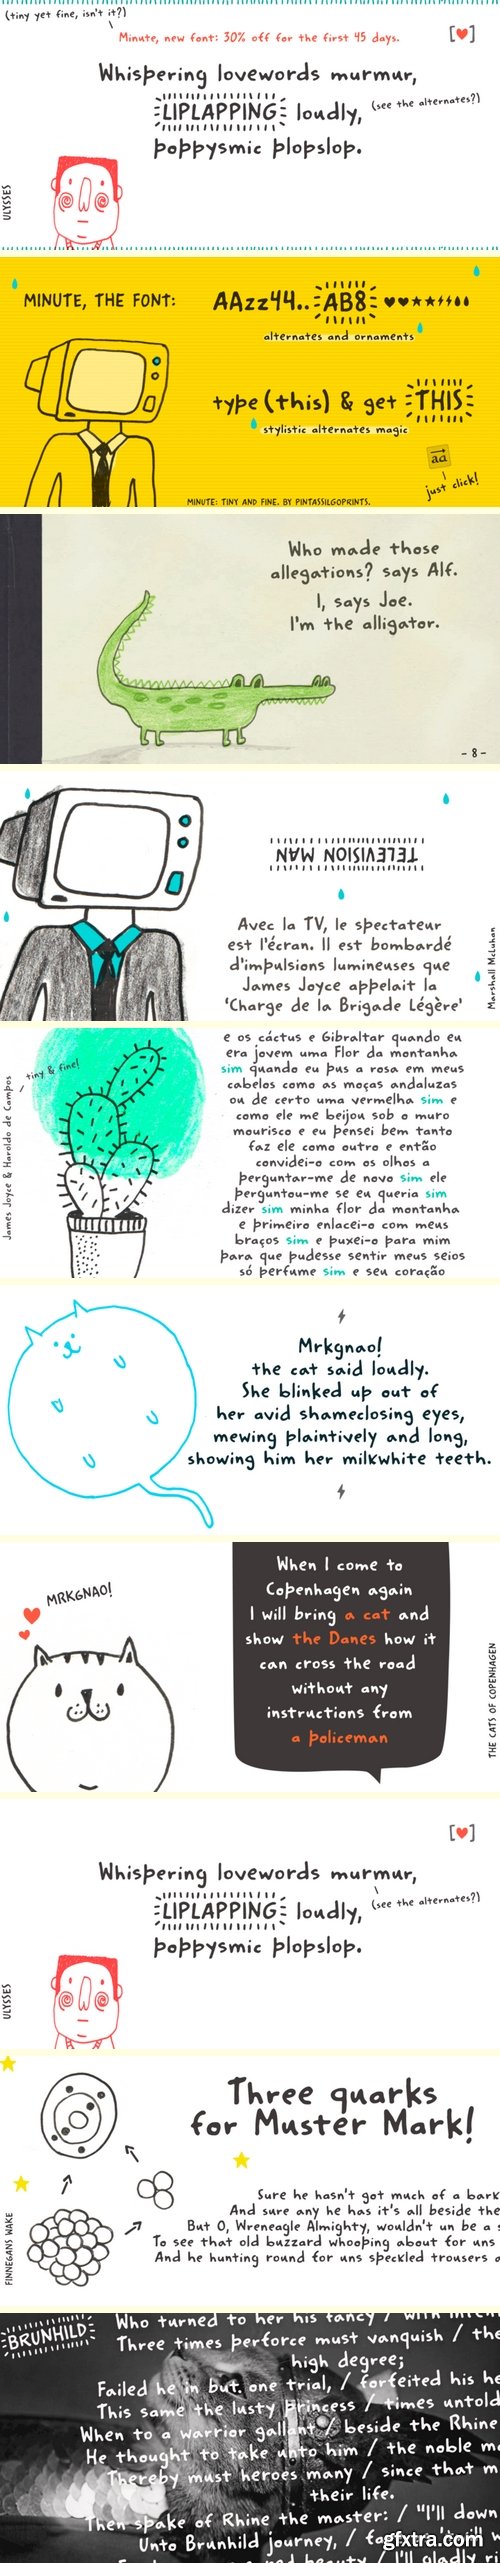 (tiny yet fine, isn't it?)
Minute, new font: 30% off for the first 45 days.
[♥]
Whispering lovewords murmur,
LIPLAPPING loudly, (see the alternates?)
poppysmic plopslop.
ULYSSES
MINUTE, THE FONT:
AAzz44.. AB8 ♥♥★★⚡⚡
alternates and ornaments
type (this) & get THIS
stylistic alternates magic
aa
just click!
MINUTE: TINY AND FINE. BY PINTASSILGOPRINTS.
Who made those
allegations? says Alf.
I, says Joe.
I'm the alligator.
- 8 -
TELEVISION MAN
Avec la TV, le spectateur
est l'écran. Il est bombardé
d'impulsions lumineuses que
James Joyce appelait la
'Charge de la Brigade Légère'
Marshall McLuhan
tiny & fine!
James Joyce & Haroldo de Campos
e os cáctus e Gibraltar quando eu
era jovem uma Flor da montanha
sim quando eu pus a rosa em meus
cabelos como as moças andaluzas
ou de certo uma vermelha sim e
como ele me beijou sob o muro
mourisco e eu pensei bem tanto
faz ele como outro e então
convidei-o com os olhos a
perguntar-me de novo sim ele
perguntou-me se eu queria sim
dizer sim minha flor da montanha
e primeiro enlacei-o com meus
braços sim e puxei-o para mim
para que pudesse sentir meus seios
só perfume sim e seu coração
Mrkgnao!
the cat said loudly.
She blinked up out of
her avid shameclosing eyes,
mewing plaintively and long,
showing him her milkwhite teeth.
MRKGNAO!
When I come to
Copenhagen again
I will bring a cat and
show the Danes how it
can cross the road
without any
instructions from
a policeman
THE CATS OF COPENHAGEN
[♥]
Whispering lovewords murmur,
LIPLAPPING loudly, (see the alternates?)
poppysmic plopslop.
ULYSSES
Three quarks
for Muster Mark!
Sure he hasn't got much of a bark
And sure any he has it's all beside the
But O, Wreneagle Almighty, wouldn't un be a s
To see that old buzzard whooping about for uns
And he hunting round for uns speckled trousers a
FINNEGANS WAKE
BRUNHILD
Who turned to her his fancy / with
Three times perforce must vanquish / the
high degree;
Failed he in but one trial, / forfeited his he
This same the lusty princess / times untold
When to a warrior gallant / beside the Rhine
He thought to take unto him / the noble m
Thereby must heroes many / since that m
their life.
Then spake of Rhine the master: / "I'll down
Unto Brunhild journey, /
beauty / I'll gladly ri
gfxtra.com